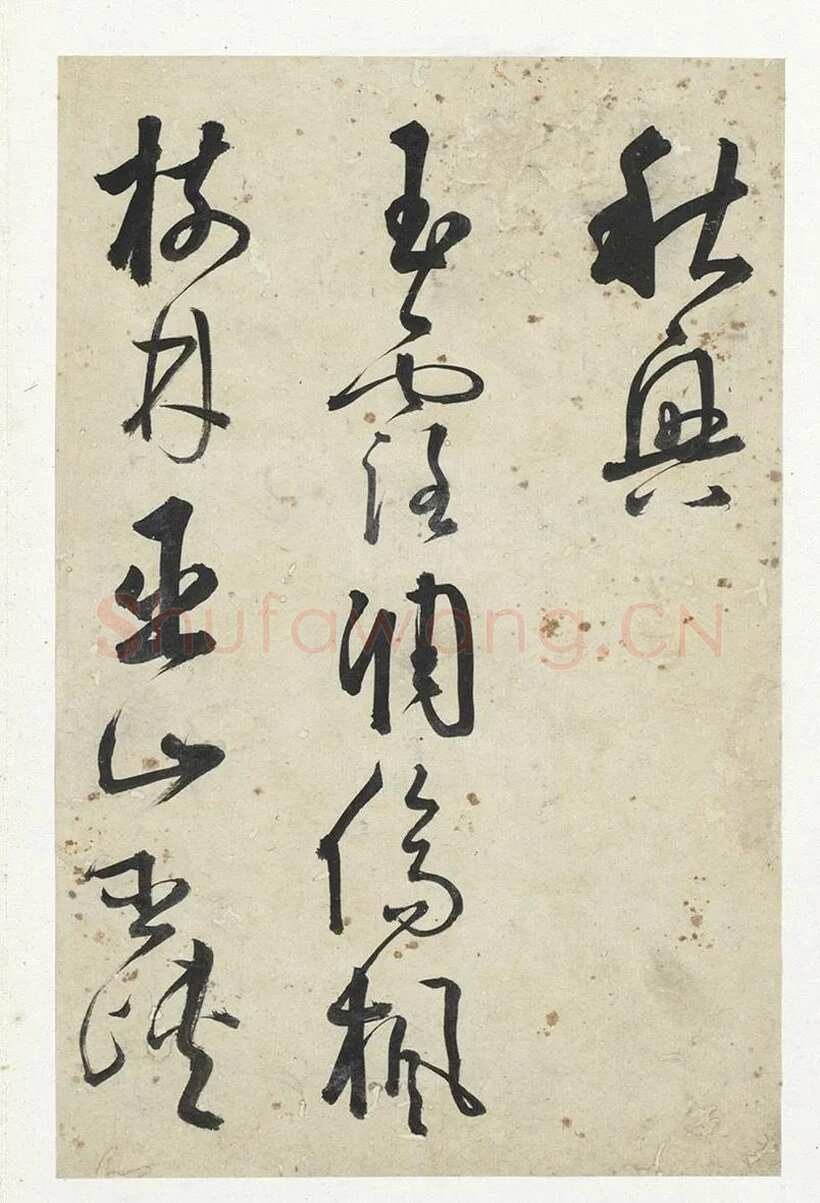 秋興
玉露凋傷楓
樹林巫山巫峽
Shufawang.CN